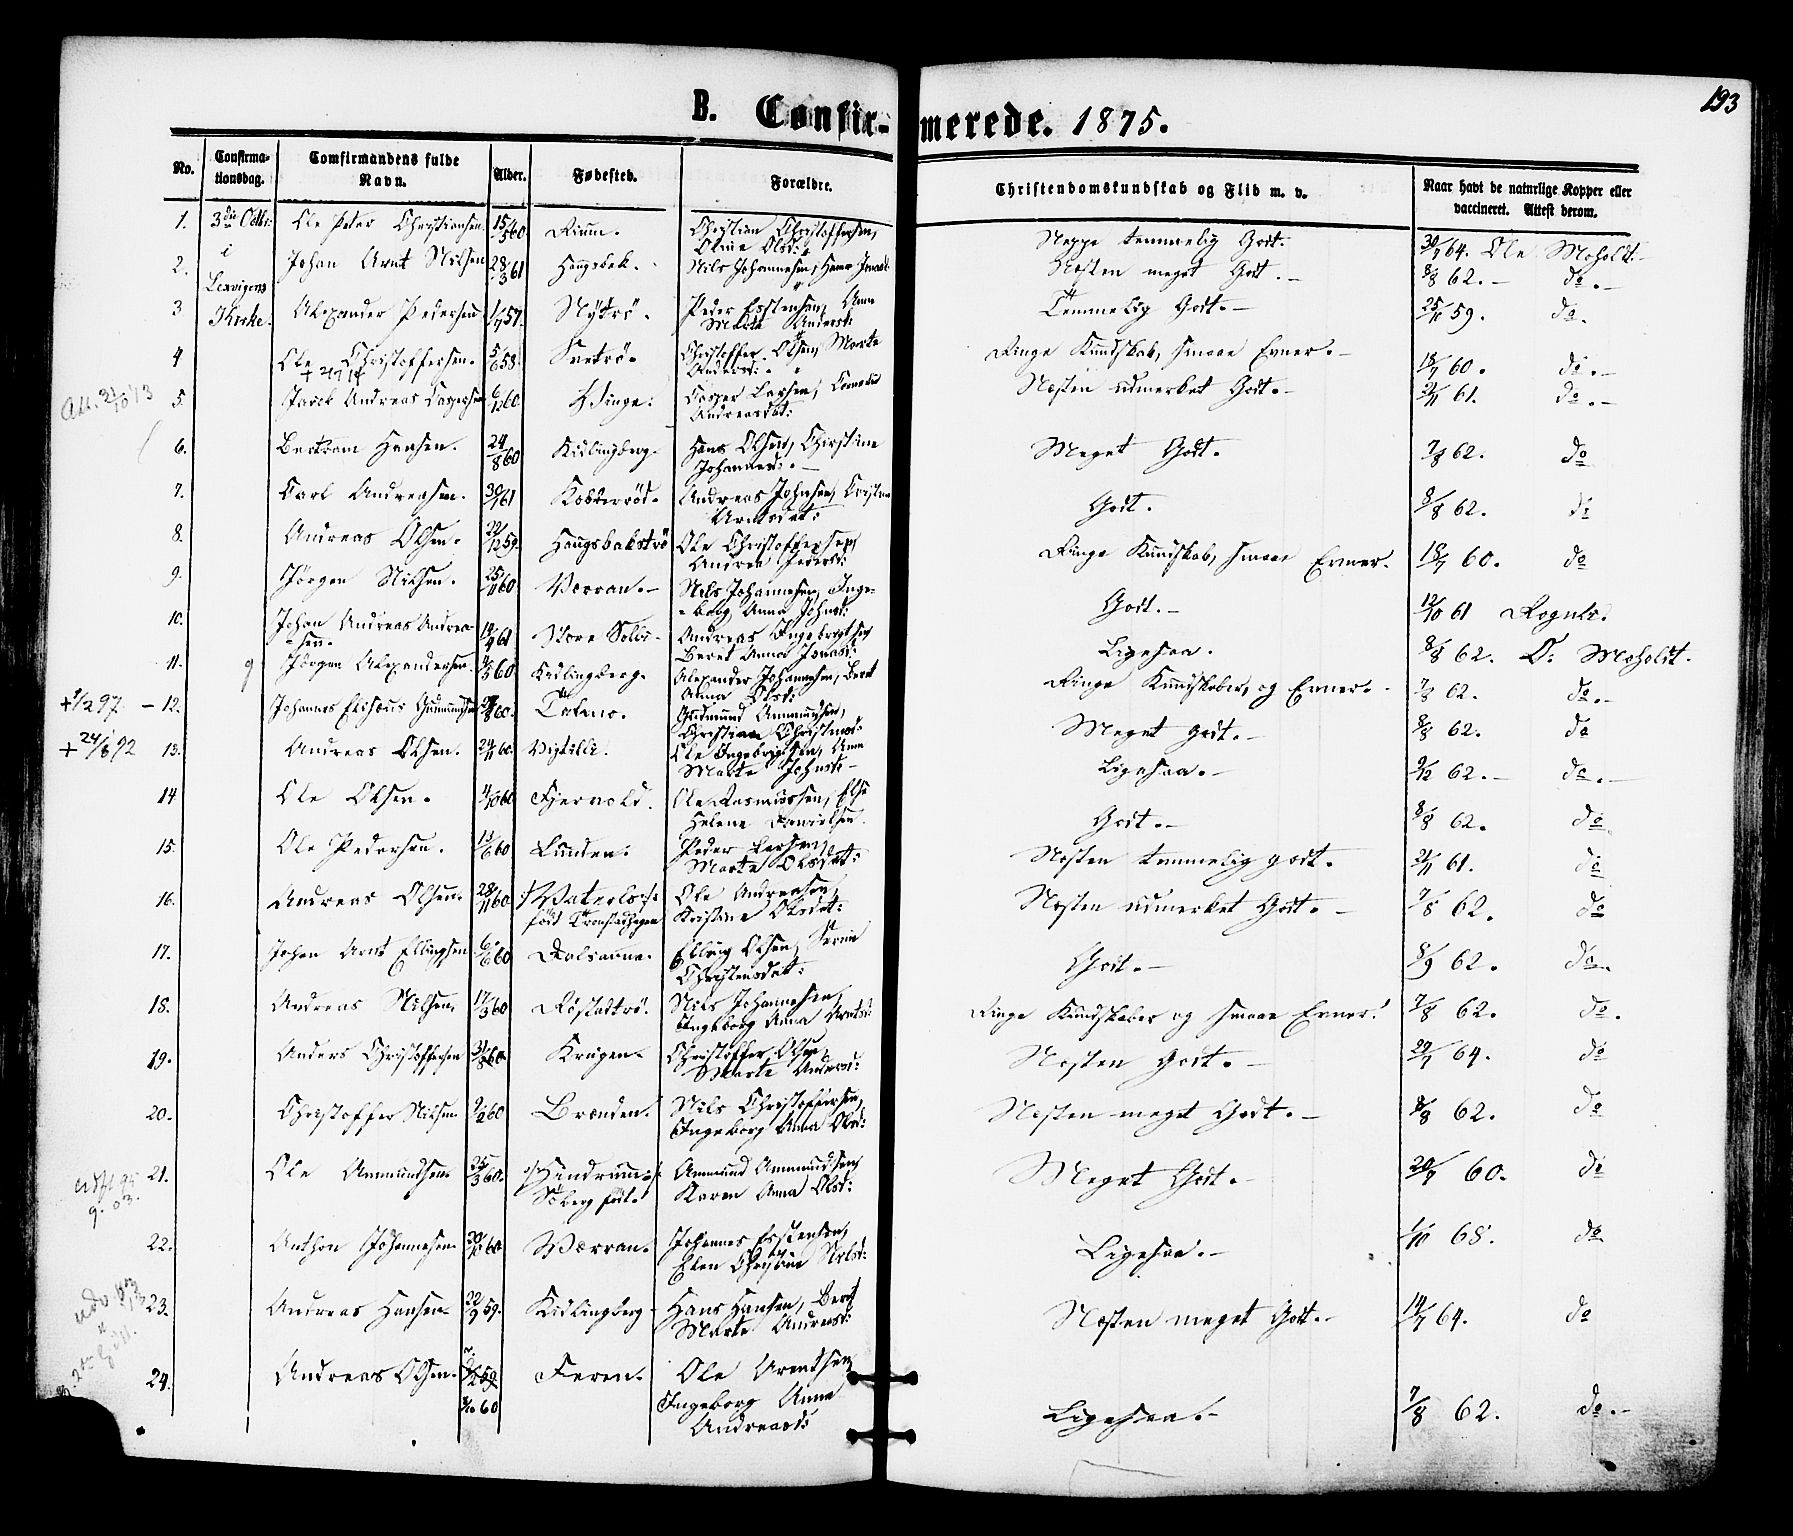 193
B. Confirmerede. 1875.
No. Confirmationsdag. Comfirmandens fulde Navn. Alder. Fødested. Forældre. Christendomskundskab og Flid m. v. Naar havt de naturlige Kopper eller vaccineret. Attest derom.
1. 3die Octbr: Ole Peter Christiansen 15/5 60 Rium. Christian Christoffersen, Oline Olsd: Neppe temmelig Godt. 64. Ole Moholdt.
i
2. Johan Arnt Nilsen 28/3 61 Haugsbak. Nils Johannesen, Næsten meget Godt. 8/8 62. do.
Lexvigens
3 Kirke. Alexander Pedersen 57. Nytrö. Peder Esstensen, Anne Marta Andersd: Temmelig Godt. 25/11 59. do.
4 Ole Christoffersen. 58. Svetrö. Christoffer Olsen, Marta Andersd: Ringe Kundskab, smaae Evner. 18/7 60. do.
Att. 2/10 13 5. Jacob Andreas Caspersen 6/12 60. Vinge: Casper Larsen, Andreasdat: Næsten udmerket Godt. 61. do.
6. Bertram Hansen. 24/8 60 Kidlingberg. Hans Olsen, Christine Johannesd: Meget Godt. 7/8 62. do
7. Carl Andreasen. 61 Kobberröd. Andreas Johnsen, Arntsdat: Godt. 8/8 62. do
8. Andreas Olsen. 22/12 59. Haugsbakströ Ole Christoffersen, Andrea Pedersd: Ringe Kundskab, smaae Evner. 18/7 60. do
9. Jörgen Nilsen. 25/11 60 Værran. Nils Johannesen, Ingeborg Anna Johnsd: Godt. 12/10 61 Rognli.
10. Johan Andreas Andreasen. 14/9 61 Store Solbr. Andreas Ingebrigtsen Beret Anna Jonasd: Ligesaa. 8/8 62. O: Moholdt.
11. Jörgen Alexandersen. 60 Kidlingberg. Alexander Johannesen, Beret Anna Olsd: Ringe Kundskaber, og Evner. 7/8 62. do.
+ 1/2 97. — 12. Johannes Elisæus Gudmundsen 60. Gudmund Ammundsen, Christiana Christensd: Meget godt. 8/8 62. do
+ 24/8 92 13. Andreas Olsen. 24/11 60. Vigtillr. Ole Ingebrigtsen, Anne Marta Johnsd: Ligesaa. 9/12 62. do.
14 Ole Olsen. 4/10 60 Fjervold. Ole Rasmussen, Else Helene Danielsen. Godt. 8/8 62. do
15. Ole Pedersen. 13/6 60 Lunden. Peder Larsen, Marta Olsdat: Næsten temmelig godt. 61. do
16. Andreas Olsen. 28/11 60 Vaterlo födt Ole Andreasen, Kristine Olsdat: Næsten udmerket Godt. 7/8 62. do
17. Johan Arnt Ellingsen 6/6 60 Dalsaune. Elling Olsen, Serine Christensdat: Godt. 8/9 62. do.
18. Andreas Nilsen. 17/3 60 Röstadtrö. Nils Johannesen, Ingeborg Anna Arntsd: Ringe Kundskaber og smaae Evner. 7/8 62. do.
19. Anders Christoffersen 31/8 60. Krugen. Christoffer Olsen, Marta Andersd: Næsten Godt. 29/7 64. do
20. Christoffer Nilsen 9/2 60 Brænden. Nils Christoffersen, Ingeborg Anna Olsd: Næsten meget Godt. 8/8 62. do
9. 03. 21. Ole Ammundsen 25/3 60. Hindrum Söberg födt. Ammund Ammundsen, Karen Anna Olsd: Meget Godt. 20/9 60. do
22. Anthon Johannesen. 20/10 60 Værran. Johannes Esstensen, Elen Christine Nilsd: Ligesaa. 1/10 68. do
23. Andreas Hansen. 22/9 59. Kidlingberg Hans Hansen, Beret Marta Andreasd: Næsten meget Godt. 14/7 64. do
24. Andreas Olsen. 59 60 Feren. Ole Arentsen Ingeborg Anna Andreasd: Ligesaa. 7/8 62. do.